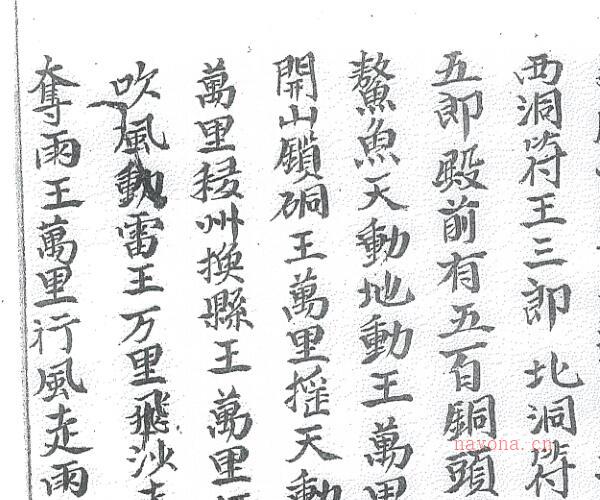 西洞符王三郎 北洞符
五郎殿前有五百銅頭
鰲魚天動地動王萬里
開山鎖硐王萬里摇天動
萬里移州換縣王 萬里
吹風動雷王万里飛沙走
奪雨王萬里行風走雨
nayona.cn